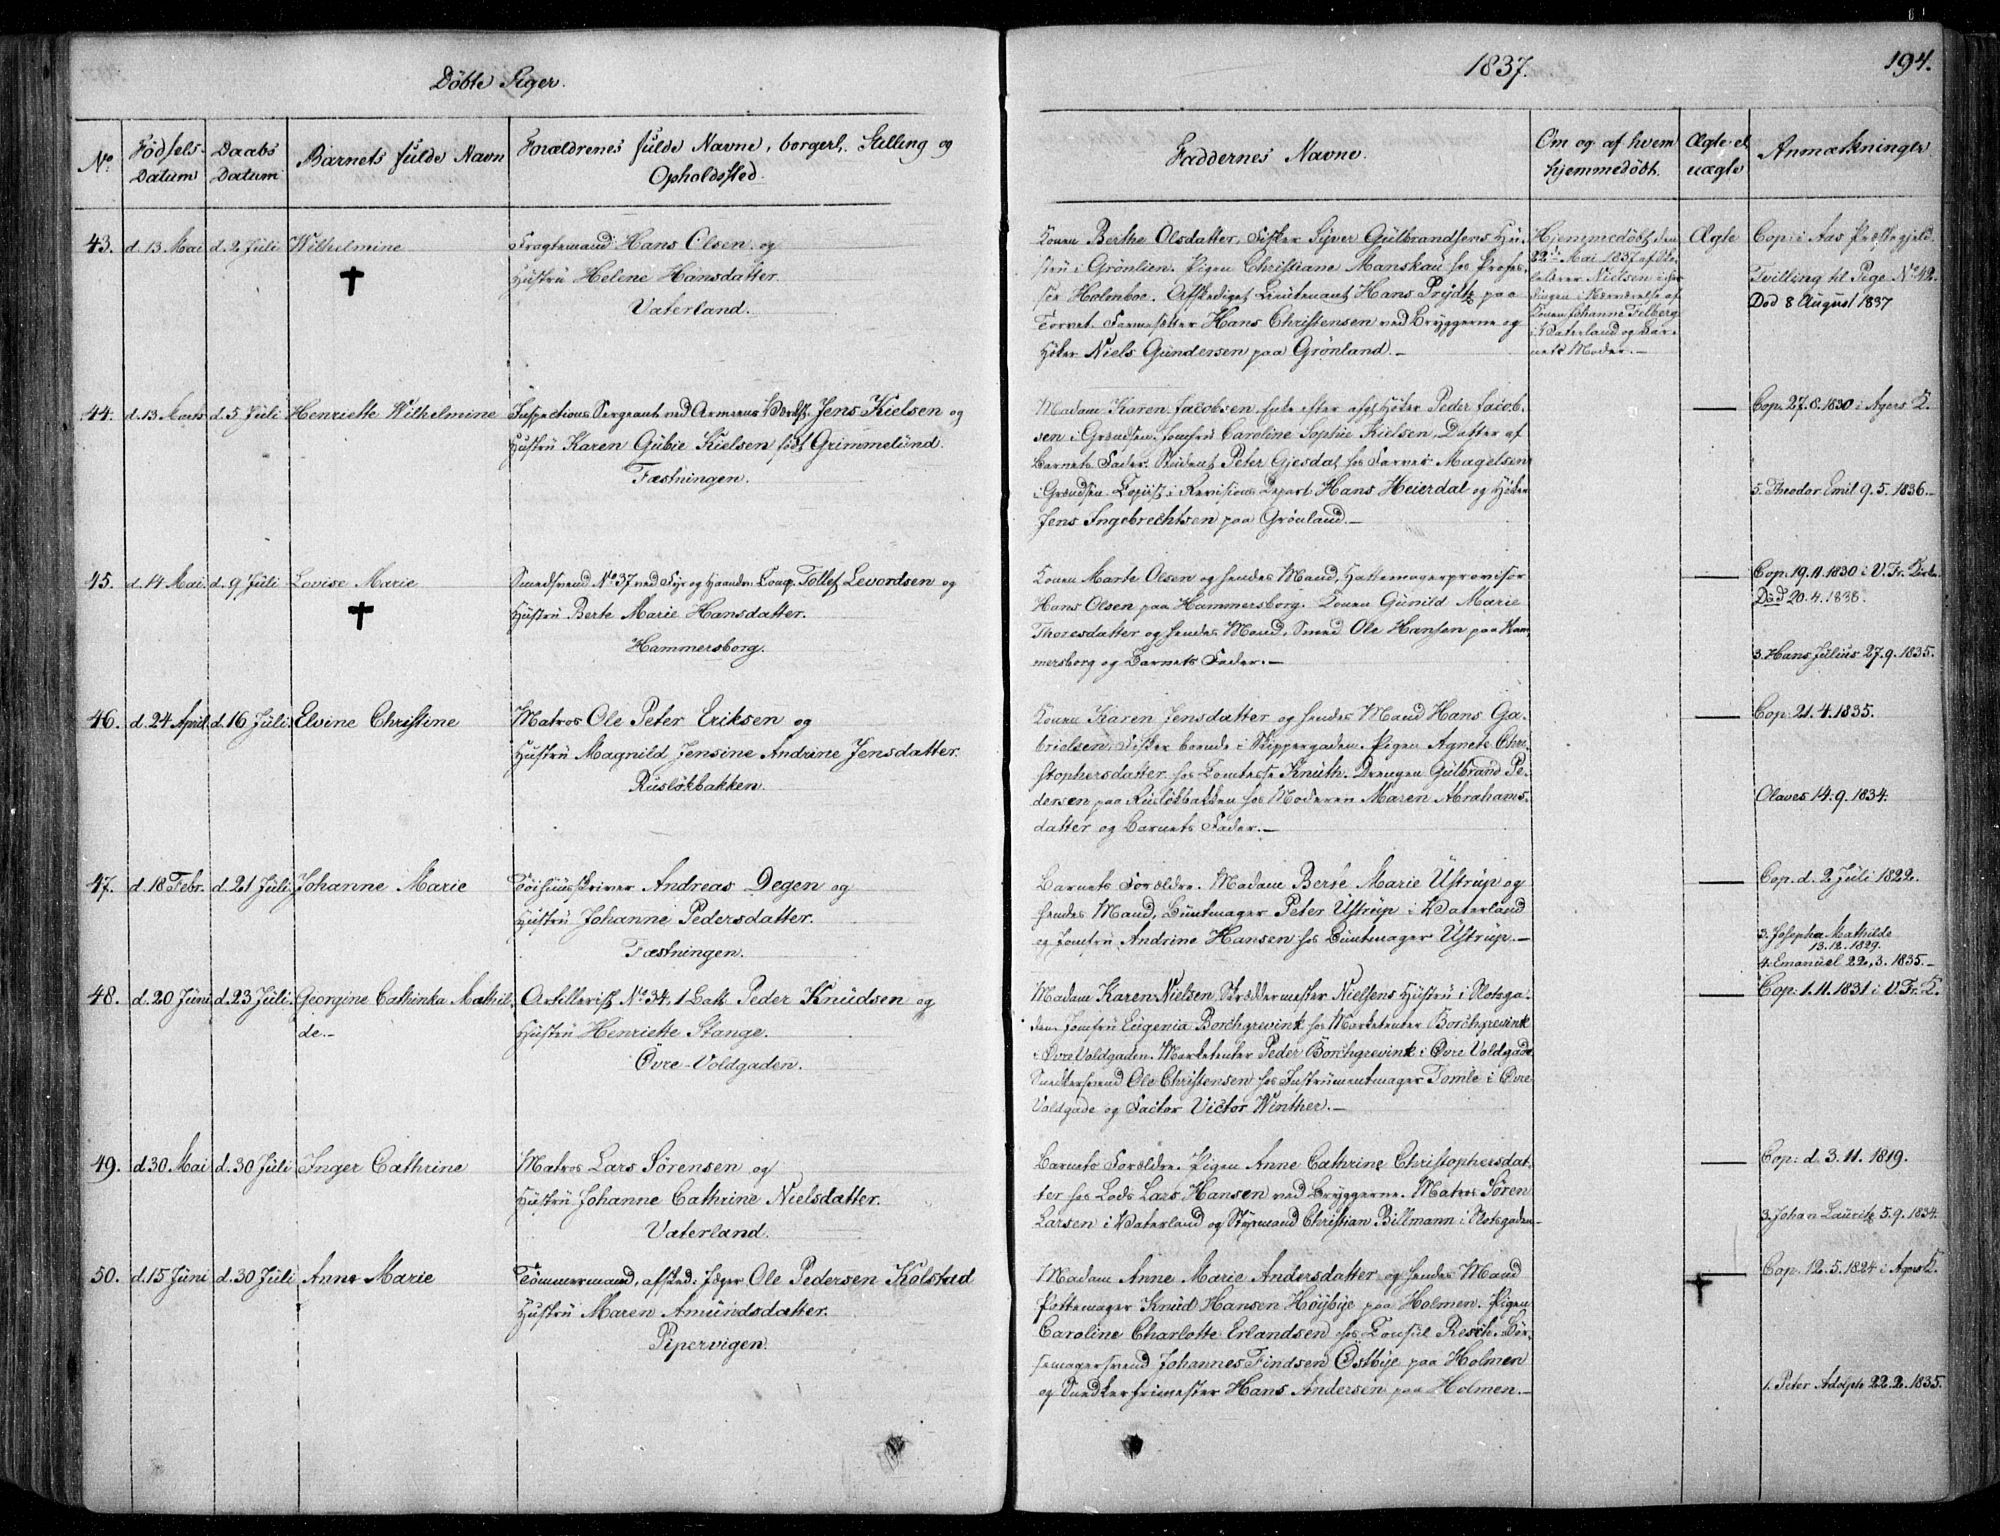 Döbte Piger.
1837.
194.
No.
Födsels-Datum
Daabs Datum
Barnets fulde Navn
Forældrenes fulde Navne, borgerl. Stilling og Opholdssted.
Faddernes Navne.
Om og af hvem hjemmedöbt.
Ægte el. uægte
Anmærkninger.
43. d. 13 Mai d. 2 Juli Wilhelmine
Fragtemand Hans Olsen og
Hustru Helene Hansdatter.
Vaterland.
Konen Berthe Olsdatter, Fisker Syver Gulbrandsens Hu-
stru i Grönlien. Pigen Christiane Manskau hos Profes-
sor Holmboe. Afskediget Lieutenant Hans Prydtz paa
Torvet. Farmesötter Hans Christensen ved Bryggerne og
Höker Niels Gundersen paa Grönland.-
Hjemmedöbt den
22de Mai 1837 af
lærer Nielsen
i Nærværelse af
Konen Johanne Felberg
i Vaterland og Bar-
nets Moder.-
Ægte
Cop: i Aas Præstegjeld.
Tvilling til Pige No 42.
Död 8 August 1837
44. d. 13 Marts d. 5 Juli Henriette Wilhelmine
Inspections Sergeant ved Armeens Værkst. Jens Kielsen og
Hustru Karen Gubie Kielsen født Grimmelund.
Fæstningen.
Madam Karen Jacobsen, Enke efter afg. Höker Peder Jacob-
sen i Grændsen. Jomfru Caroline Sophie Kielsen, Datter af
Barnets Fader. Student Peter Gjesdal hos Farver Magelsen
i Grændsen. Copiist i Revisions Depart. Hans Heierdal og Höker
Jens Ingebrechtsen paa Grönland.-
Cop. 27.8.1830 i Agers K.
5. Theodor Emil 9.5.1836.-
45. d. 14 Mai. d. 9 Juli Lovise Marie
Smedsvend No 37 ved Fyr og Haandv. Comp. Tollef Levordsen og
Hustru Berte Marie Hansdatter.
Hammersborg.
Konen Marte Olsen og hendes Mand, Hattemagerprovisor
Hans Olsen paa Hammersborg. Konen Gunild Marie
Thoresdatter og hendes Mand, Smed Ole Hansen paa Ham-
mersborg og Barnets Fader.-
Cop. 19.11.1830 i V. Fr. Kirke.
Död 20.4.1838.
3. Hans Julius 27.9.1835.
46. d. 24 April d. 16 Juli. Elvine Christine
Matros Ole Peter Eriksen og
Hustru Magnild Jensine Andrine Jensdatter.
Ruslökbakken.
Konen Karen Jensdatter og hendes Mand Hans Ga-
brielsen, Fisker boende i Skippergaden. Pigen Agnete Chri-
stophersdatter hos Comtesse Knuth. Drengen Gulbrand Pe-
dersen paa Ruslökbakken hos Moderen Maren Abrahams-
datter og Barnets Fader.-
Cop. 21.4.1835.
Olaves 14.9.1834.
47. d. 18 Febr. d. 21 Juli. Johanne Marie
Töihuusskriver Andreas Degen og
Hustru Johanne Pedersdatter.
Fæstningen.
Barnets Forældre. Madam Berte Marie Ustrup og
hendes Mand, Buntmager Peter Ustrup i Vaterland
og Jomfru Andrine Hansen hos Buntmager Ustrup.-
Cop. d. 2 Juli 1822.
3. Josepha Mathilde
13.12.1829.
4. Emanuel 22.3.1835.-
48. d. 20 Juni d. 23 Juli. Georgine Cathinka Mathil-
de.-
Artillerist No 34, 1 Batt. Peder Knudsen og
Hustru Henriette Stange.
Övre-Voldgaden.
Madam Karen Nielsen, Skræddermester Nielsens Hustru i Slotsga-
den. Jomfru Eugenia Borchgrevink hos Marketenter Borchgrevink
i Övre Voldgaden. Marketenter Peder Borchgrevink i Övre Voldgade.
Snedkersvend Ole Christensen hos Instrumentmager Tomle i Övre
Voldgade og Factor Victor Winther.-
Cop: 1.11.1831 i V. Fr. K.
49. d. 30 Mai d. 30 Juli Inger Cathrine
Matros Lars Sörensen og
Hustru Johanne Cathrine Nielsdatter.
Vaterland.
Barnets Forældre. Pigen Anne Cathrine Christophersdat-
ter hos Lods Lars Hansen ved Bryggerne. Matros Sören
Larsen i Vaterland og Styrmand Christian Billmann i Slotsgaden-
Cop: d. 3.11.1819.
3. Johan Lauritz 5.9.1834.
50. d. 15 Juni d. 30 Juli Anne Marie
Tömmermand, afsked: Jæger Ole Pedersen Kolstad
Hustru Maren Amundsdatter.
Pipervigen.
Madam Anne Marie Andersdatter og hendes Mand
Pottemager Knud Hansen Höybye paa Holmen. Pigen
Caroline Charlotte Erlandsen hos Consul Resch. Bör-
stemagersvend Johannes Findsen Östbye paa Holmen
og Snedkerfrimester Hans Andersen paa Holmen.-
Cop. 12.5.1824 i Agers K.
1. Peter Adolph 22.2.1835.